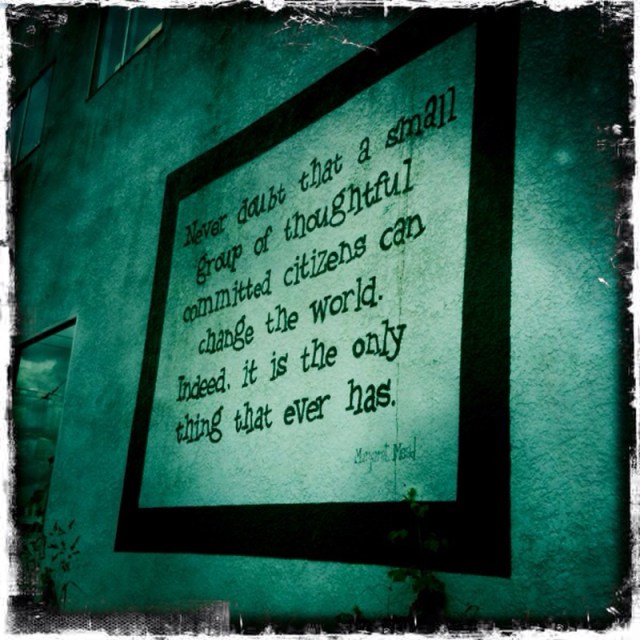 Never doubt that a small
group of thoughtful
committed citizens can
change the world.
Indeed, it is the only
thing that ever has.
Margaret Mead